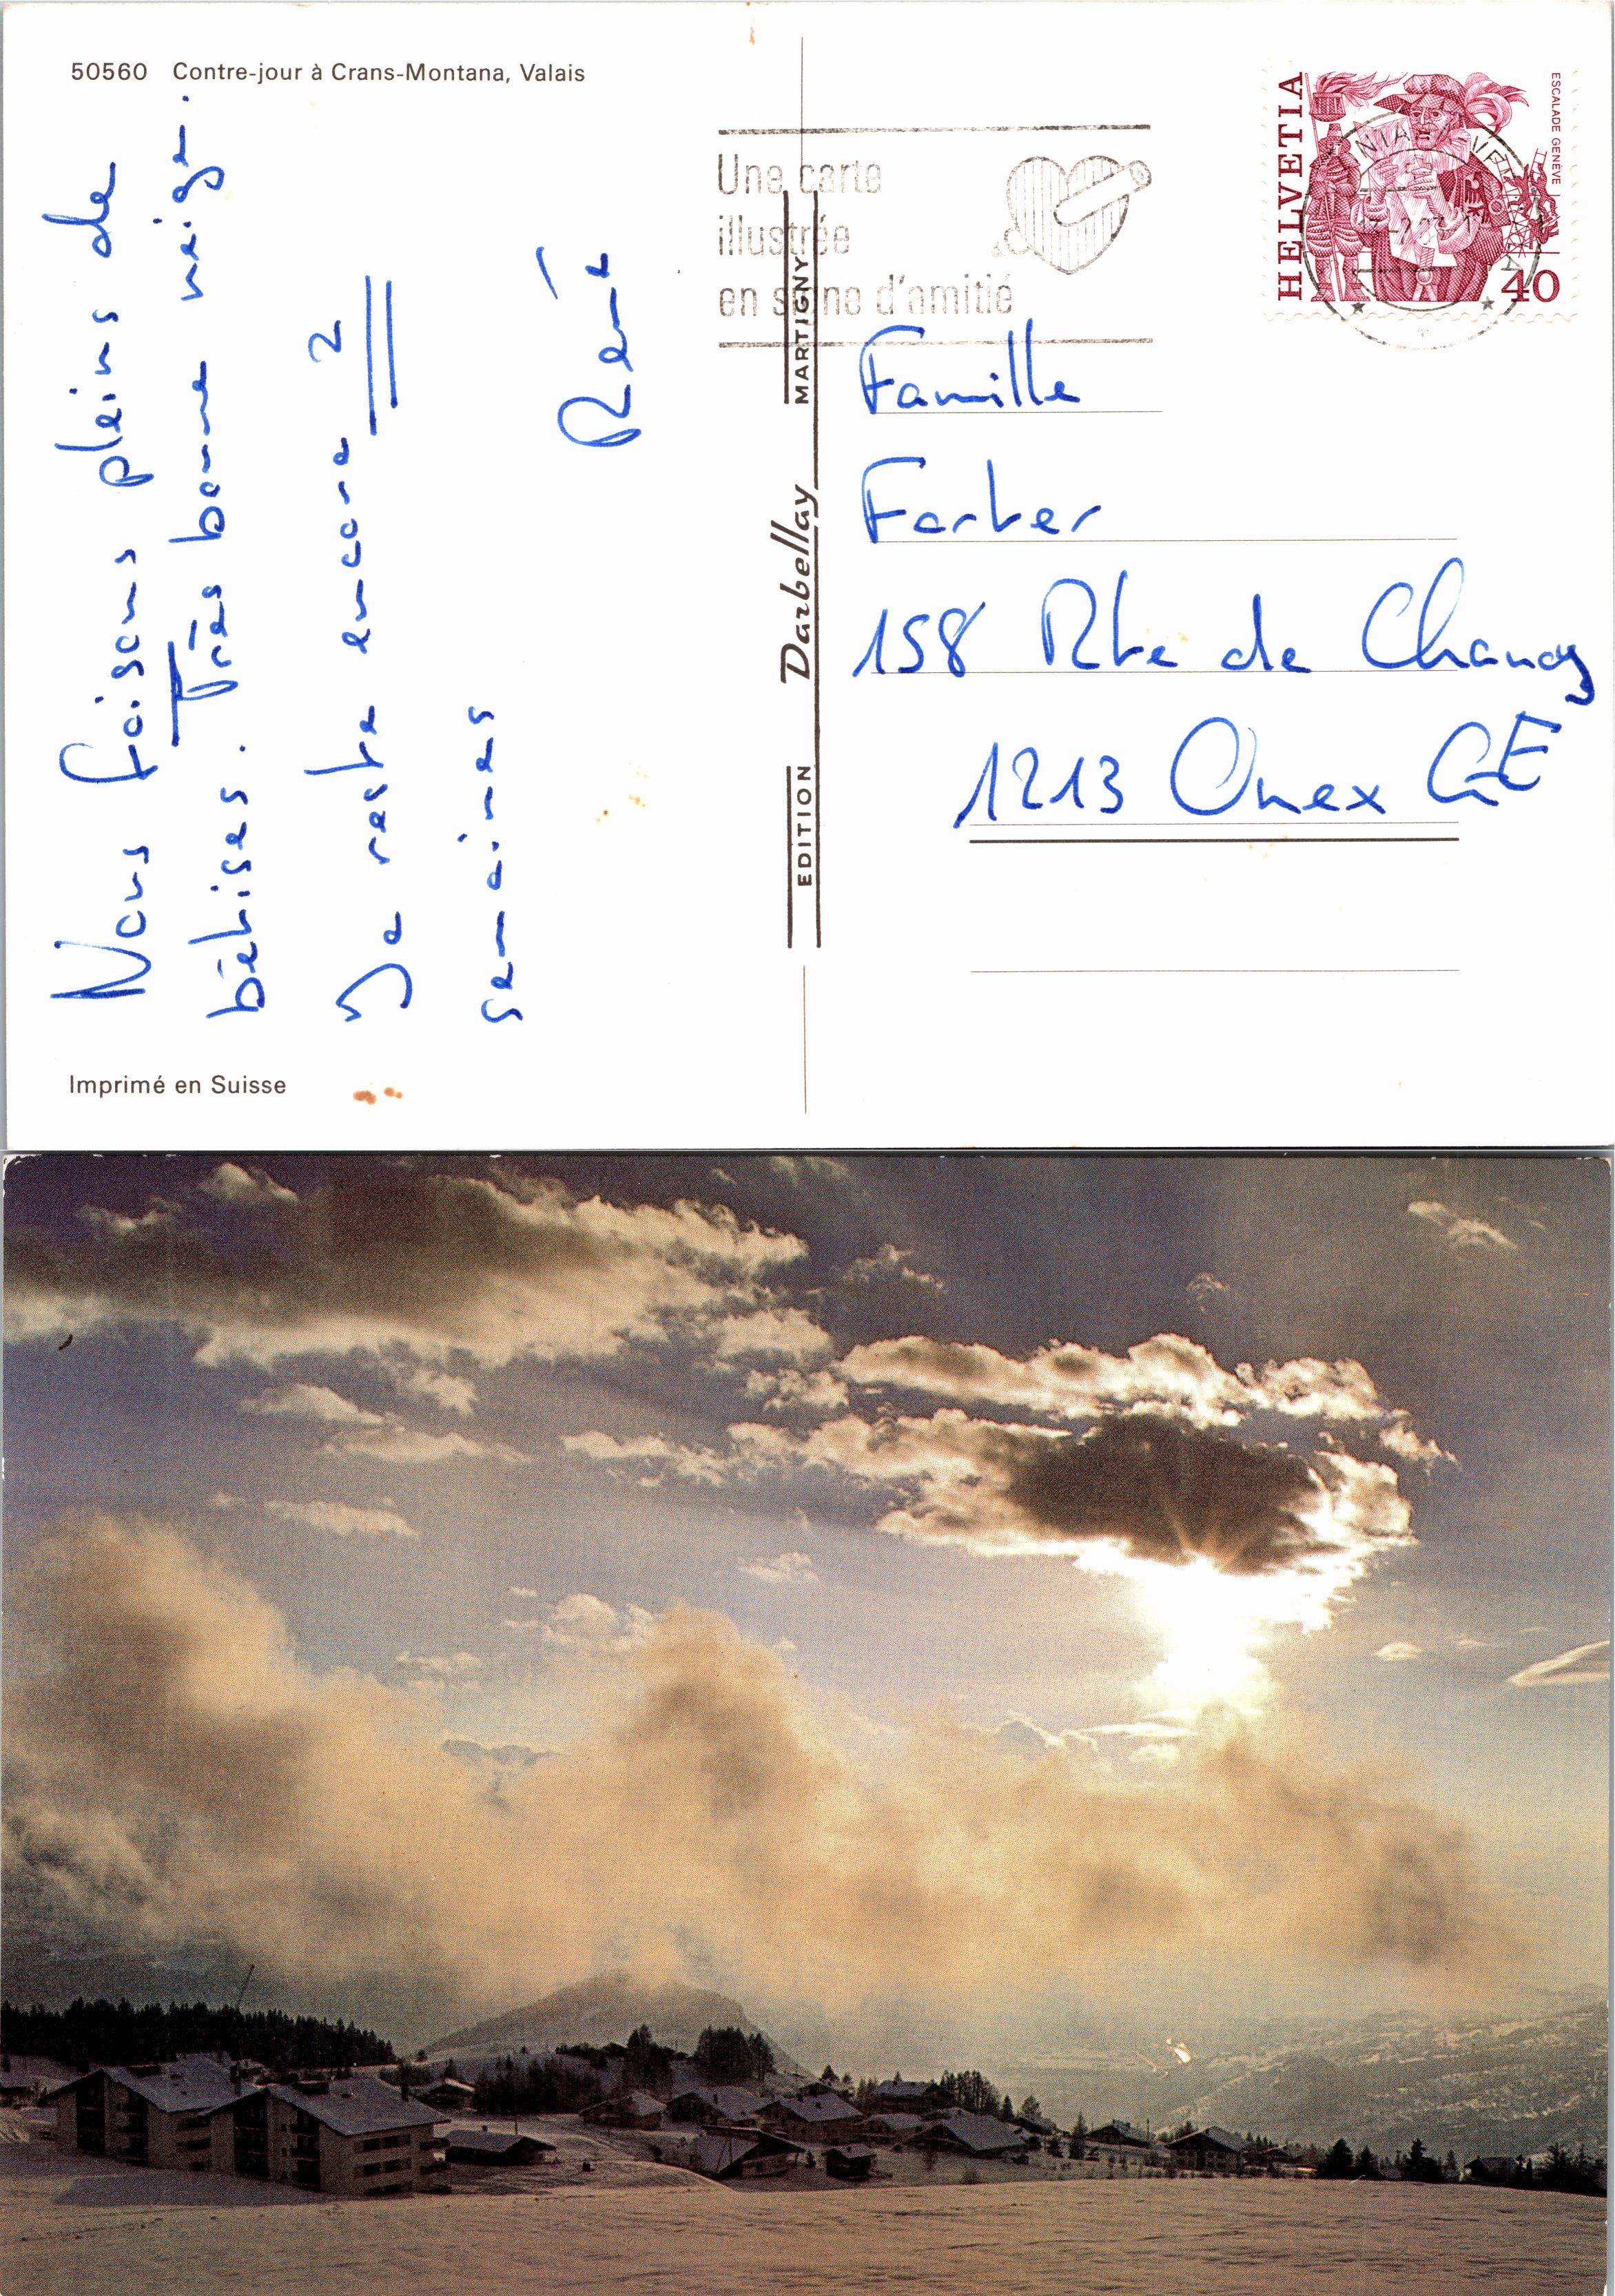 50560 Contre-jour à Crans-Montana, Valais
Nous faisons pleins de
bêtises. Très bonne neige.
Je reste encore 2
semaines
René
Imprimé en Suisse
EDITION Darbellay MARTIGNY
Une carte
illustrée
en signe d'amitié
HELVETIA
ESCALADE GENÈVE
40
Famille
158 Rte de Chancy
1213 Onex GE